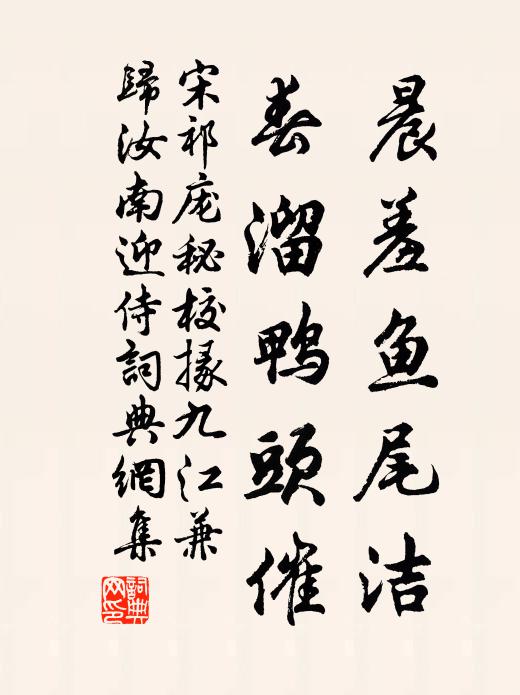 晨羞鱼尾洁
春溜鸭頭催
宋祁庞秘校掾九江兼
歸汝南迎侍詞典網集
詞典网印